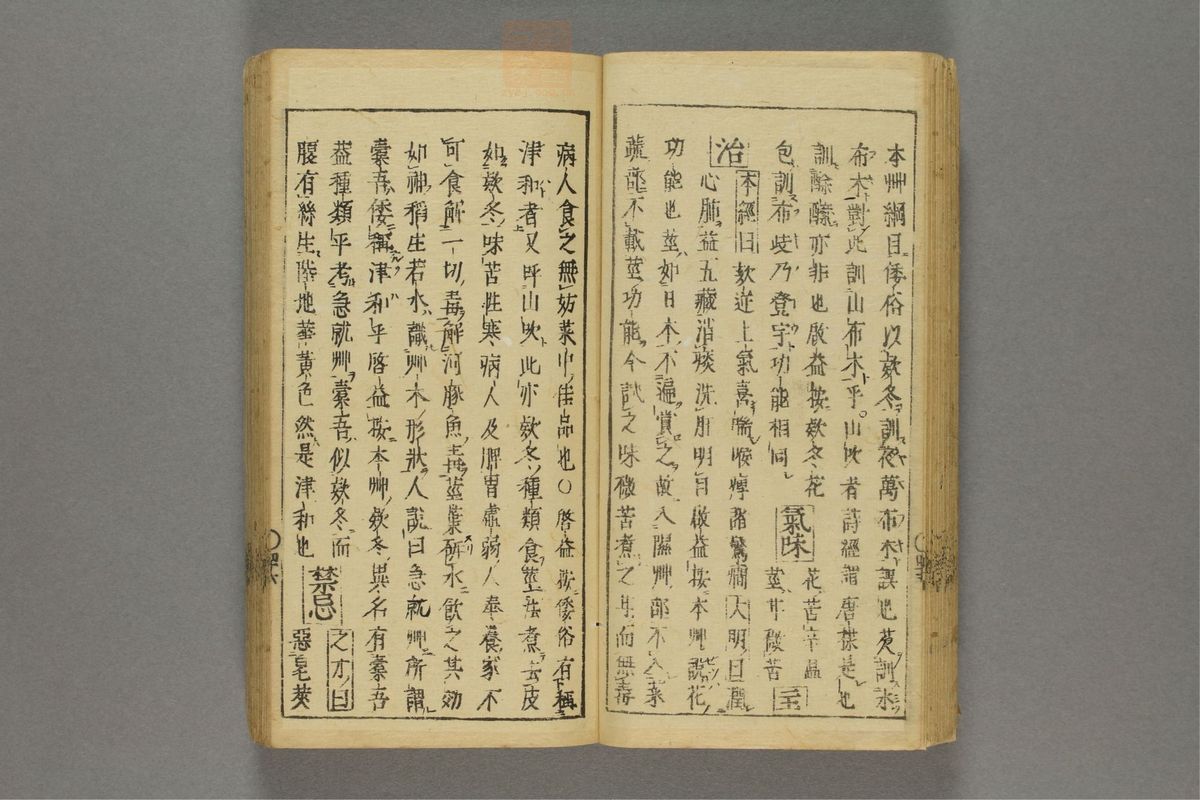 本艸綱目倭俗以欵冬訓夜萬布木誤也蕗訓水
布木對此訓山布木乎山吹者詩經謂唐棣是也
訓酴醿亦非也啟益按欵冬花 氣味 花苦辛温
包訓布歧乃登字功能相同 莖甘微苦 主
治 本經曰欬逆上氣喜喘喉痺諸驚癇大明曰潤
心肺益五臓消痰洗肝明目啟益按本艸說花
功能也莖如日本不遍賞之故入隰艸部不入菜
蔬部不載莖功能今試之味微苦煮之甘而無毒
病人食之無妨菜中佳品也〇啓益按倭俗有稱
津和者又呼山吹此亦欵冬種類食莖法煮去皮
如欵冬味苦性寒病人及脾胃虚弱人奉養家不
可食解一切毒解河豚魚毒莖葉研水飲之其効
如神稻生若水識艸木形狀人說曰急就艸所謂
橐吾倭稱津和乎啓益按本艸欵冬異名有橐吾
葢種類乎考急就艸橐吾似欵冬而
腹有絲生陸地華黃色然是津和也 禁忌 之才曰
惡皂莢